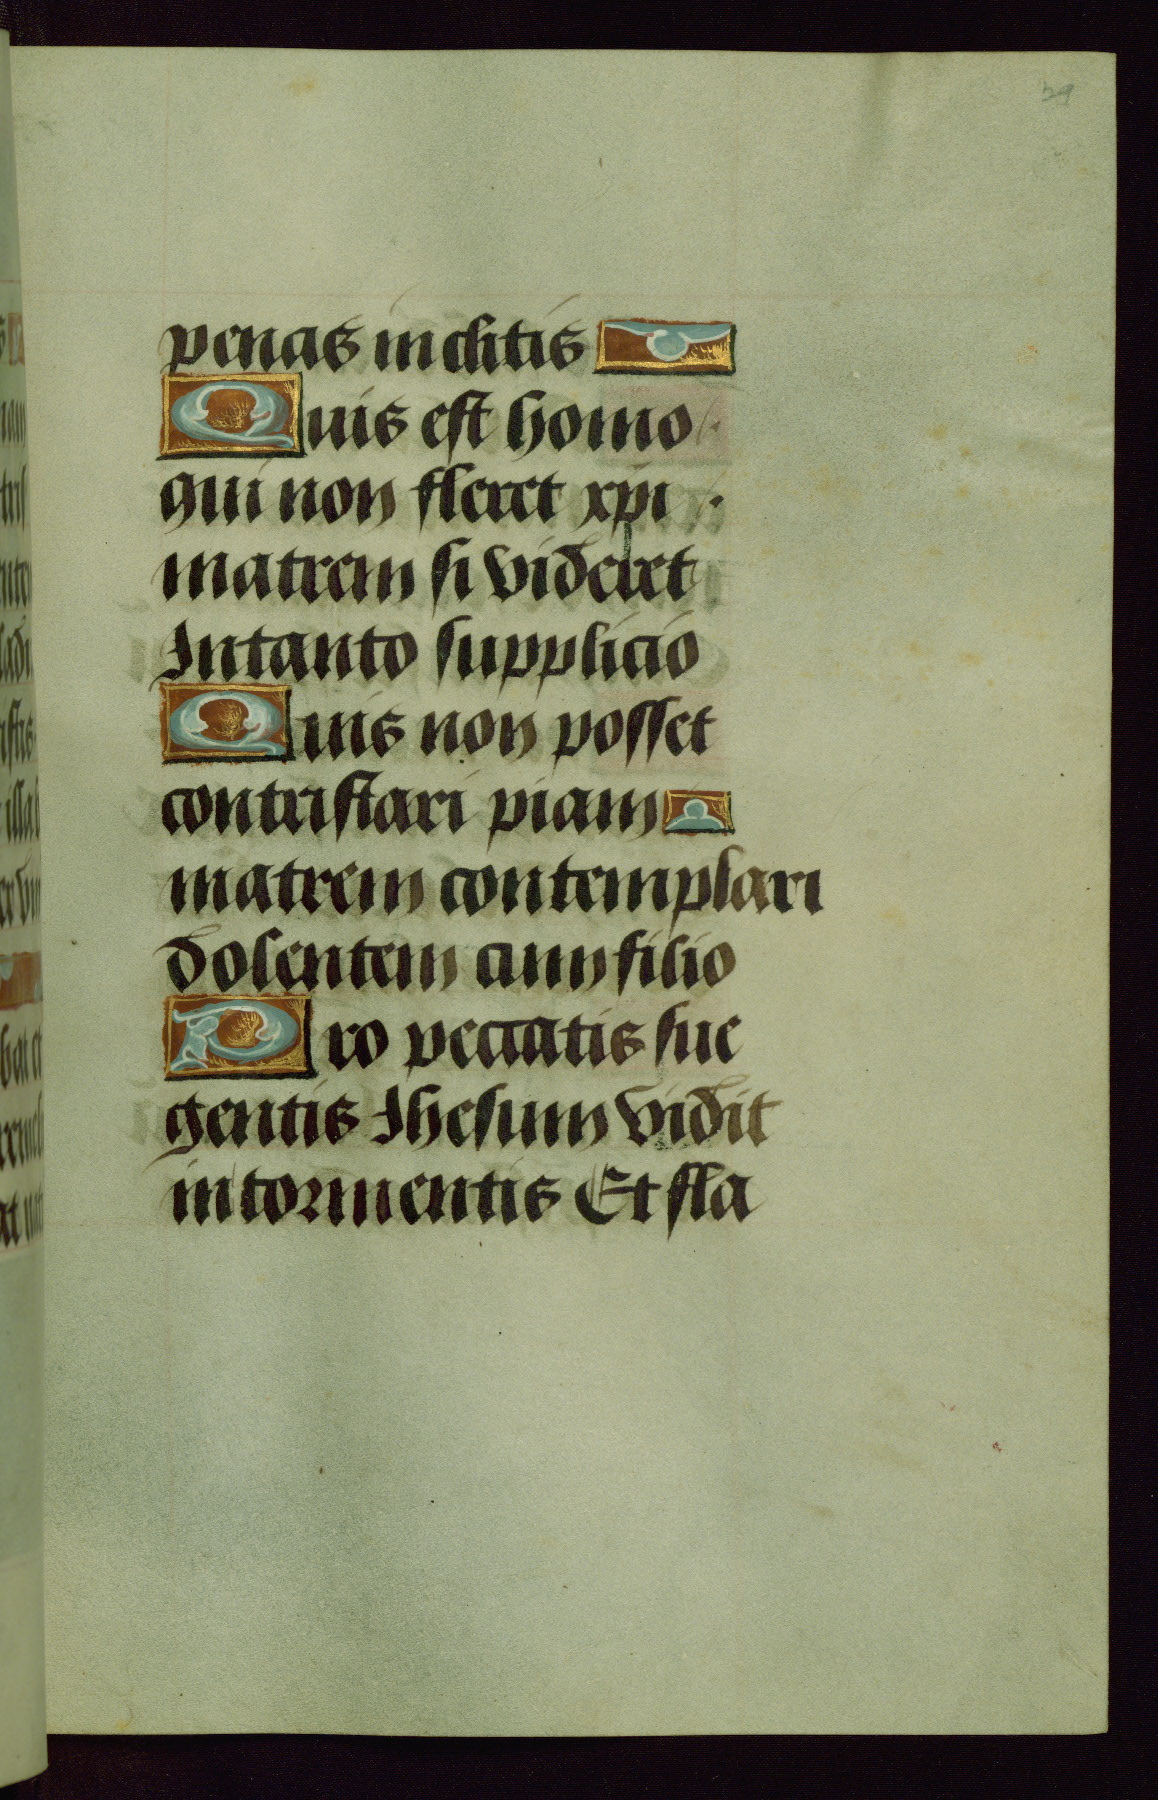 29
penas incliti​s
Quis est homo
qui non fleret xpi
matrem si videret
In tanto supplicio
Quis non posset
contristari piam
matrem contemplari
dolentem cum filio
Pro peccatis sue
gentis Ihesum vidit
in tormentis Et fla